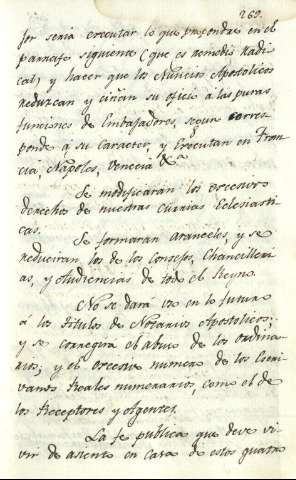 269.
jor seria executar lo que propondré en el
parrafo siguiente (que es remedio radi
cal) y hacer que los Nuncios Apostolicos
reduzcan y ciñan su oficio á las puras
funciones de Embajadores, segun corres-
ponde á su Caracter, y Executan en Fran
cia, Napoles, Venecia &ª
Se modificarán los excesivos
derechos de nuestras Curias Eclesiasti
cas.
Se formaran aranceles, y se
reduciran los de los Consejos, Chancilleri
as, y Audiencias de todo el Reyno.
No se dará uso en lo futuro
á los titulos de Notarios Apostolicos;
y se corregirá el abuso de los ordina-
rios, y el excesivo numero de los Escri
vanos Reales numerarios, como el de
los Receptores y Agentes.
La fe publica que deve vi-
vir de asiento en casa de estos quatro